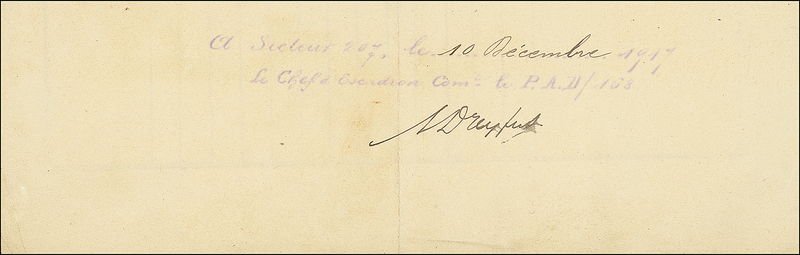 A Secteur 207, le 10 Décembre 1917
Le Chef d'Escadron Comt le P.A.D/168
A Dreyfus